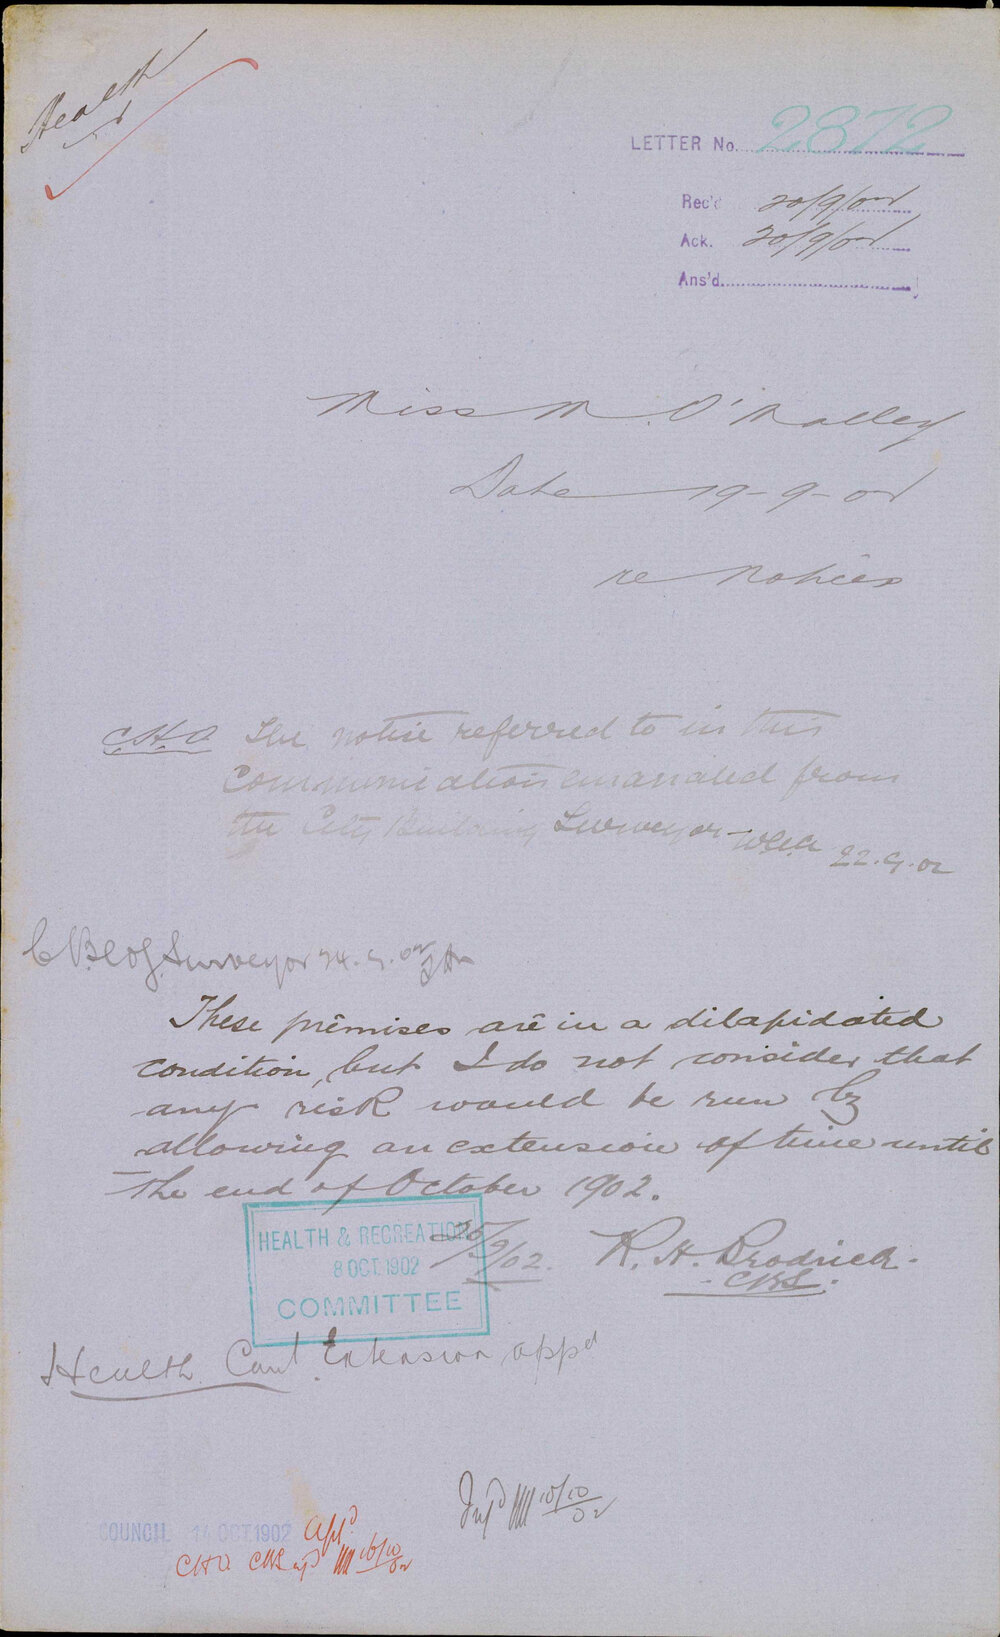 Health
LETTER No. 2872
Rec'd 20/9/02
Ack. 20/9/02
Ans'd.
Miss M. O'Malley
Date 19-9-02
re Notices
C.H.O. The notice referred to in this
Communication emanated from
the City Building Surveyor
22.9.02
C Bldg Surveyor 24.9.02
These premises are in a dilapidated
condition, but I do not consider that
any risk would be run by
allowing an extension of time until
the end of October 1902.
HEALTH & RECREATION
8 OCT. 1902
COMMITTEE
25/9/02. R. H. Brodrick.
CBS.
Health Com. Extension appd
Infd 10/10/02
COUNCIL OCT 1902 appd.
CHO CBS 10/10/02